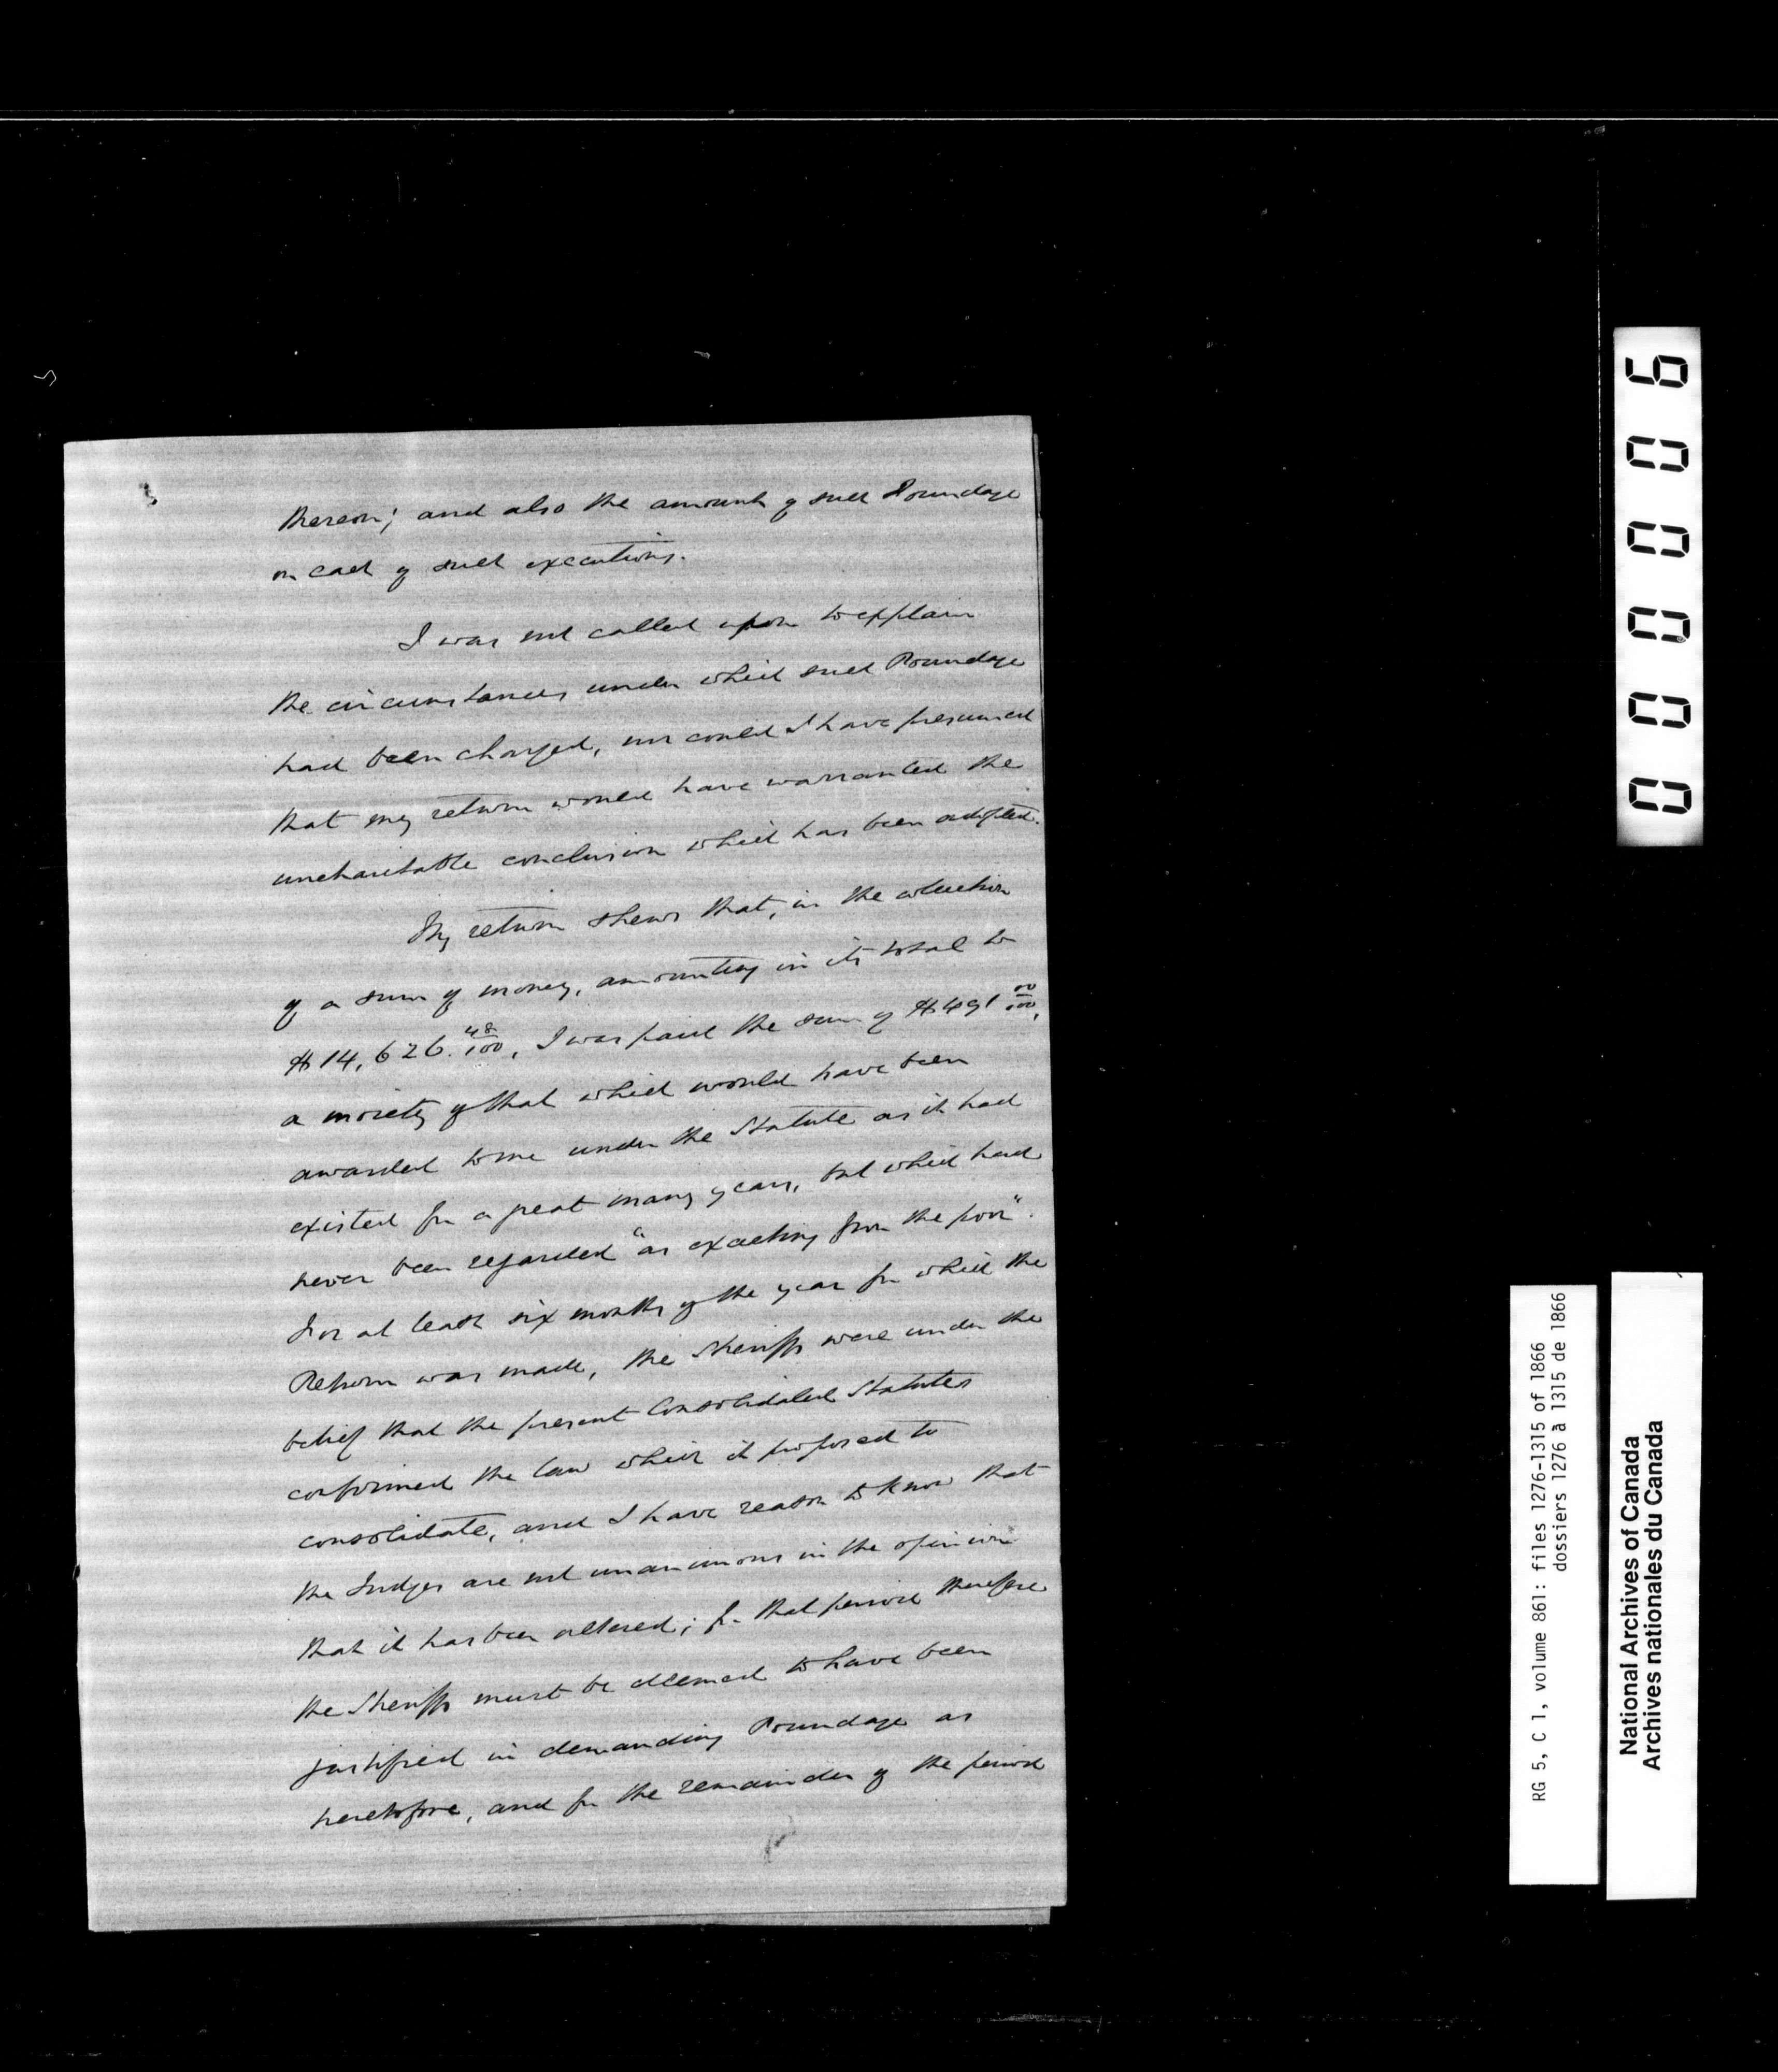 thereon; and also the amount of such Poundage
on each of such executions.
I was not called upon to explain
the circumstances under which such Poundage
had been charged, nor could I have presumed
that my return would have warranted the
uncharitable conclusion which has been adopted.
My return shews that, in the collection
of a sum of money, amounting in its total to
$14,626.48/100, I was paid the sum of $491 00/100,
a moiety of that which would have been
awarded to me under the Statute as it had
existed for a great many years, but which had
never been regarded "as exacting from the poor".
For at least six months of the year for which the
Return was made, the Sheriffs were under the
belief that the present Consolidated Statutes
confirmed the law which it proposed to
consolidate, and I have reason to know that
the Judges are not unanimous in the opinion
that it has been altered; for that period therefore
the Sheriffs must be deemed to have been
justified in demanding Poundage as
heretofore, and for the remainder of the period
000006
RG 5, C 1, volume 861: files 1276-1315 of 1866
dossiers 1276 à 1315 de 1866
National Archives of Canada
Archives nationales du Canada